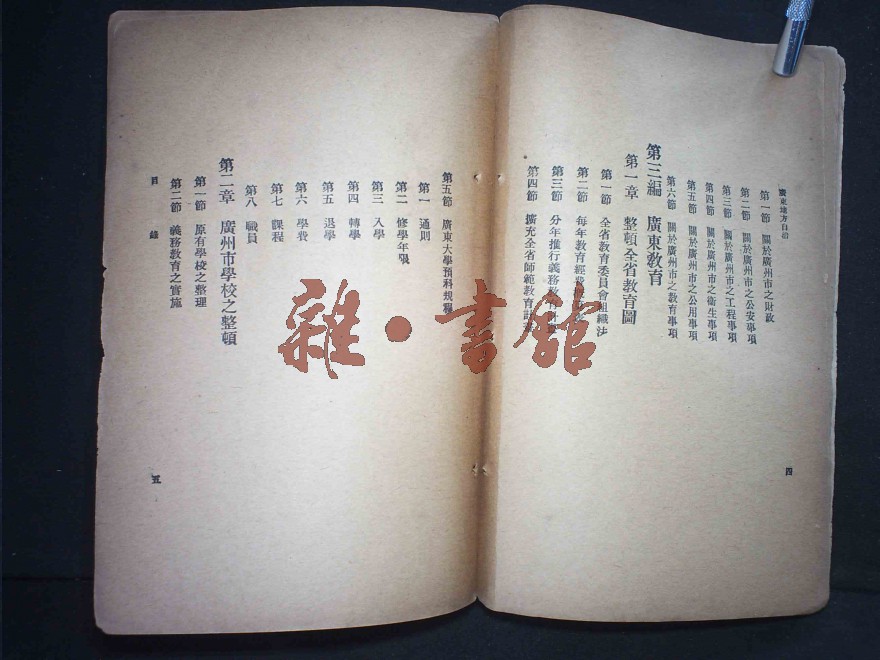 廣東地方自治
第一節 關於廣州市之財政
第二節 關於廣州市之公安事項
第三節 關於廣州市之工程事項
第四節 關於廣州市之衛生事項
第五節 關於廣州市之公用事項
第六節 關於廣州市之教育事項
第三編 廣東教育
第一章 整頓全省教育圖
第一節 全省教育委員會組織法
第二節 每年教育經費
第三節 分年推行義務教育
第四節 擴充全省師範教育計
四
第五節 廣東大學預科規
第一 通則
第二 修學年限
第三 入學
第四 轉學
第五 退學
第六 學費
第七 課程
第八 職員
第二章 廣州市學校之整頓
第一節 原有學校之整理
第二節 義務教育之實施
目錄
五
雜·書館